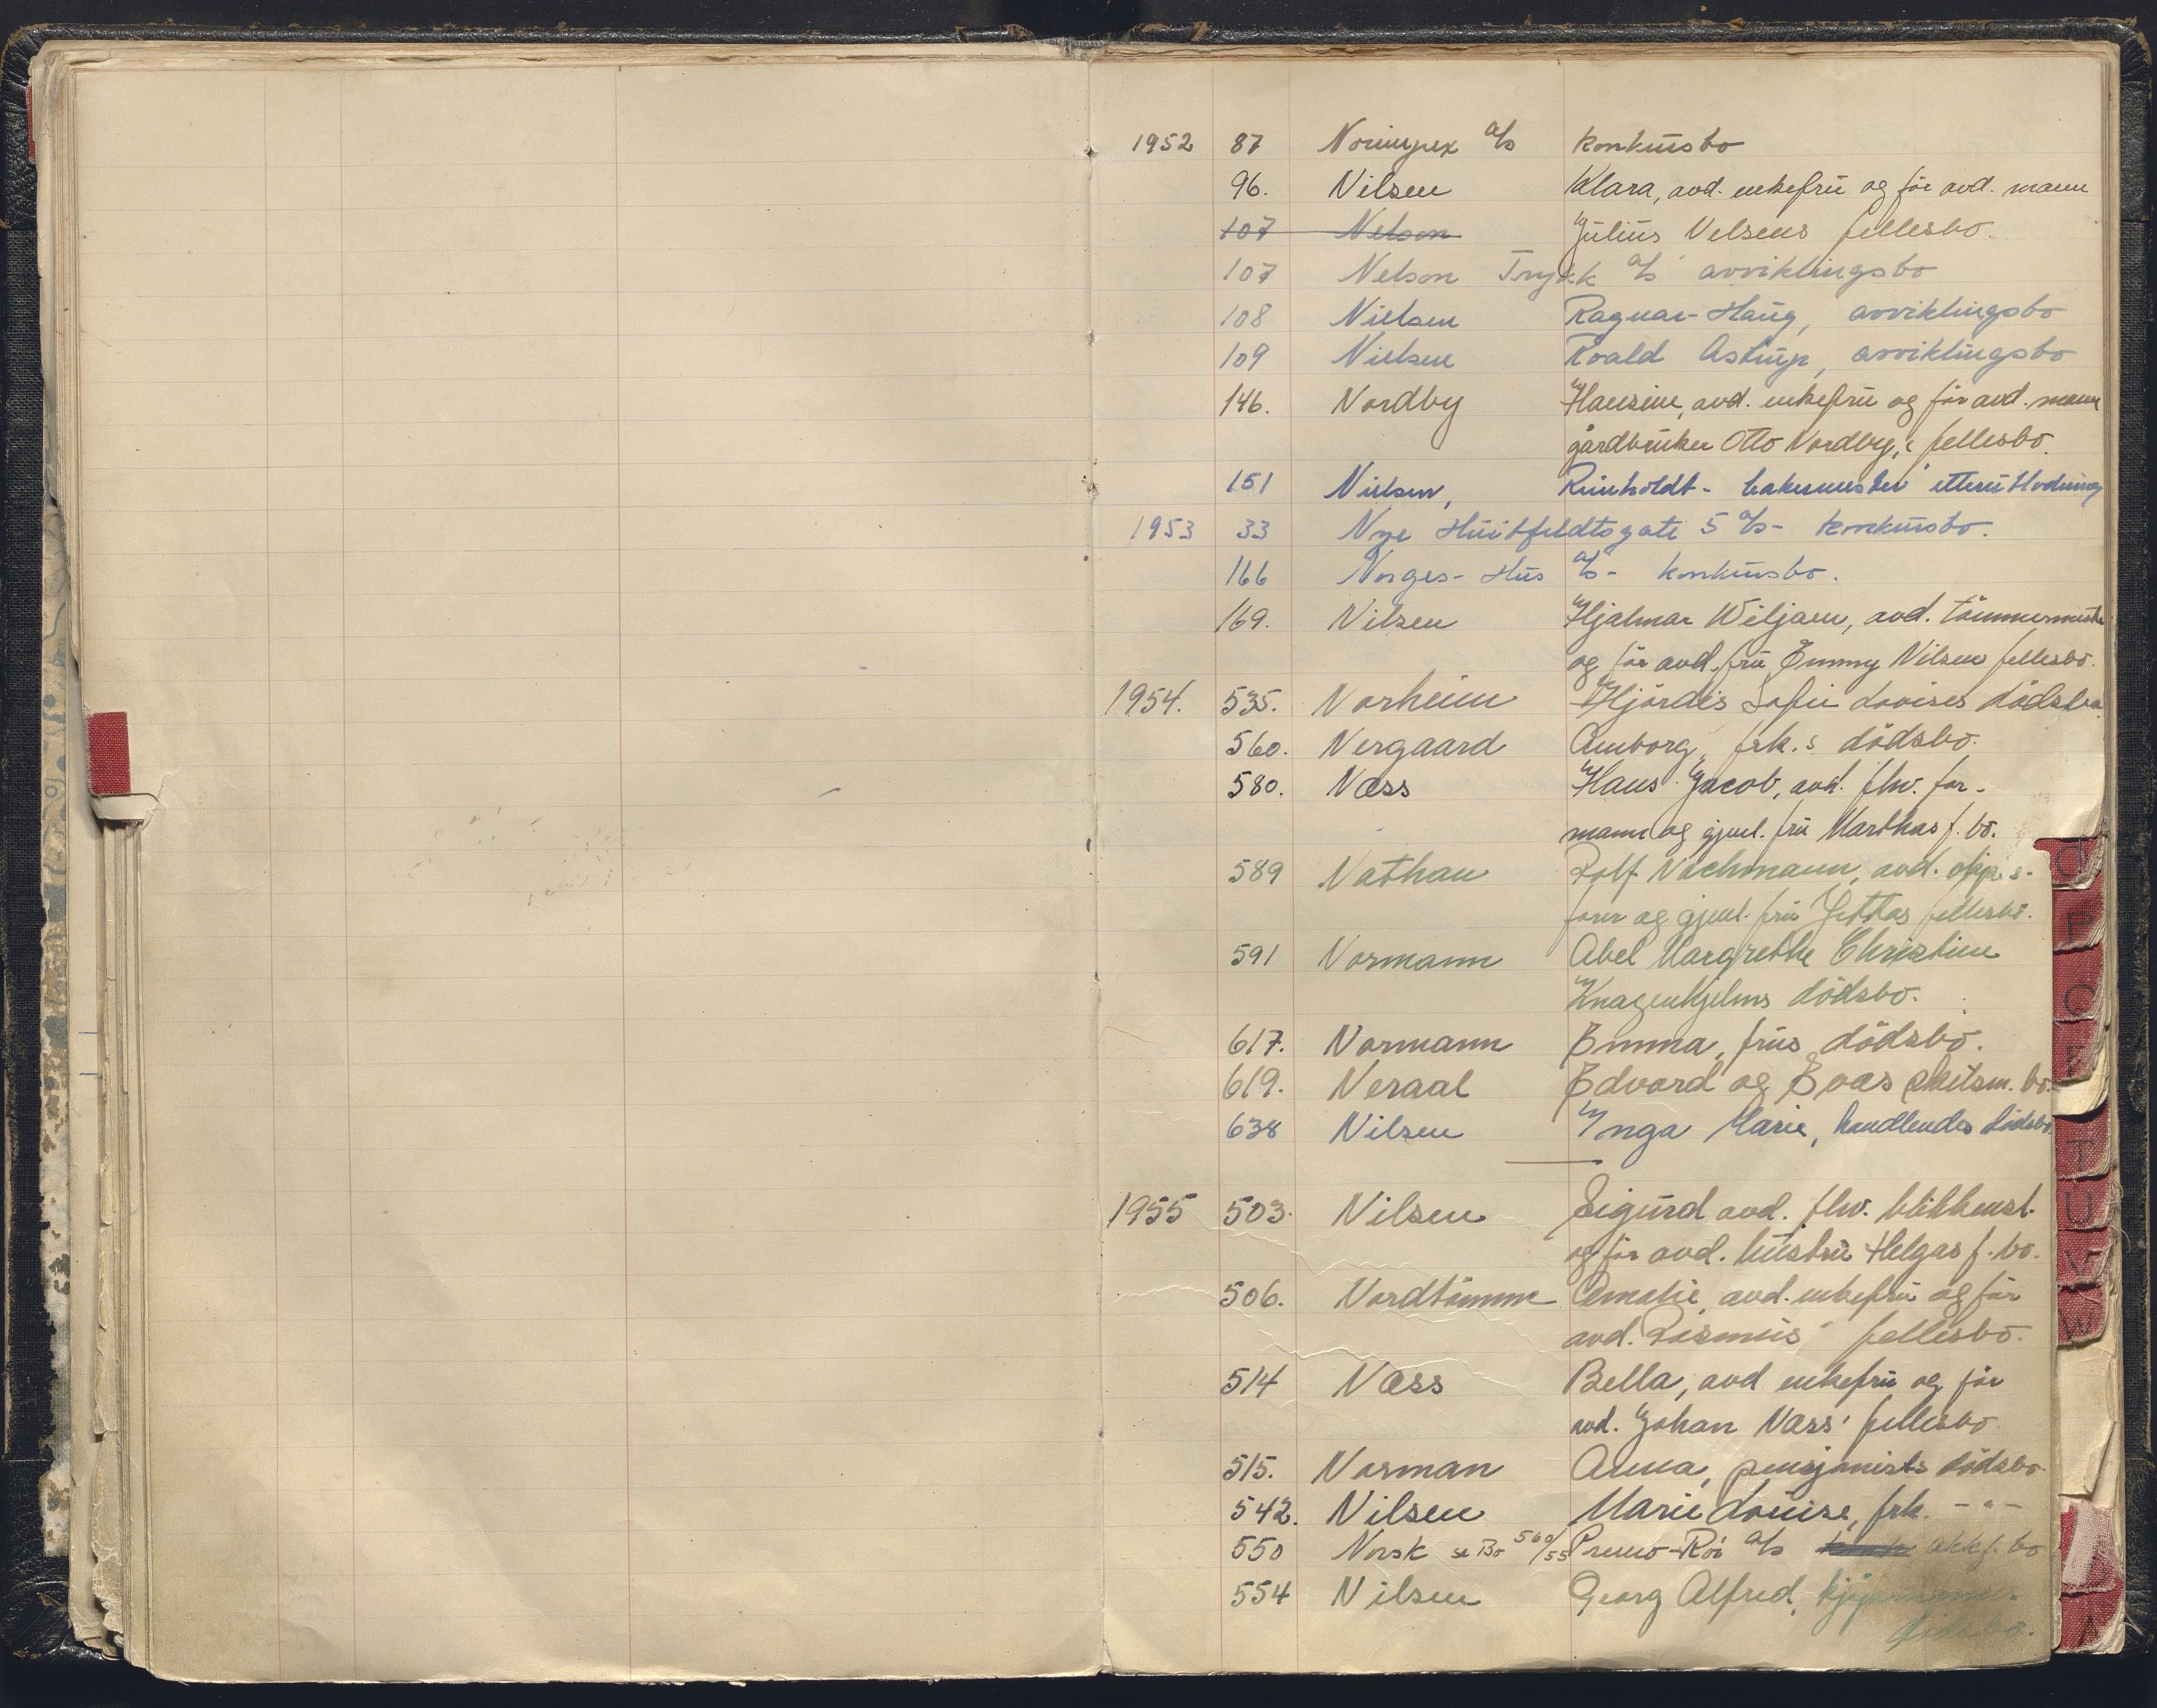 1952 87 Norimpex a/s konkursbo
96. Nilsen Klara, avd. enkefru og før avd. mann
107 Nelson Julius Nilsens fellesbo.
107 Nelson Trykk a/s avviklingsbo
108 Nielsen Ragnar-Haug, avviklingsbo
109 Nielsen Roald Astrup, avviklingsbo
146. Nordby Hansine, avd. enkefru og før avd. mann
gårdbruker Otto Nordby's fellesbo.
151 Nielsen, Reinholdt - bakermester etterutlodning
1953 33 Nye Huitfeldtsgate 5 a/s - konkursbo.
166 Norges-Hus a/s - konkursbo.
169. Nilsen Hjalmar Wiljam, avd. tømmermester
og før avd. fru Emmy Nilsens fellesbo.
1954. 535. Norheim Hjørdis Sofie Lovises dødsbo
560. Nergaard Amborg, frk.s dødsbo.
580. Næss Hans Jacob, avd. fhv. for-
mann og gjenl. fru Marthas f. bo.
589 Nathan Rolf Nachmann, avd. opps-
fører og gjenl. fru Jettas fellesbo.
591 Normann Abel Margrethe Christine
Knagenhjelms dødsbo.
617. Normann Emma, frus dødsbo.
619. Neraal Edvard og Evas skilsm. bo.
638 Nilsen Inga Marie, handlendes dødsbo.
1955 503. Nilsen Sigurd avd. fhv. blikkensl.
og før avd. hustru Helgas f. bo.
506. Nordtømme Amalie, avd. enkefru og før
avd. Rasmus' fellesbo.
514 Næss Bella, avd enkefru og før
avd. Johan Næss' fellesbo.
515. Norman Anna, pensjonists dødsbo.
542. Nilsen Marie Louise, frk. - " -
550 Norsk se Bo 560/55 Premo-Rör a/s akkf. bo
554 Nilsen Georg Alfred,
dødsbo.
P
T
U
V
W